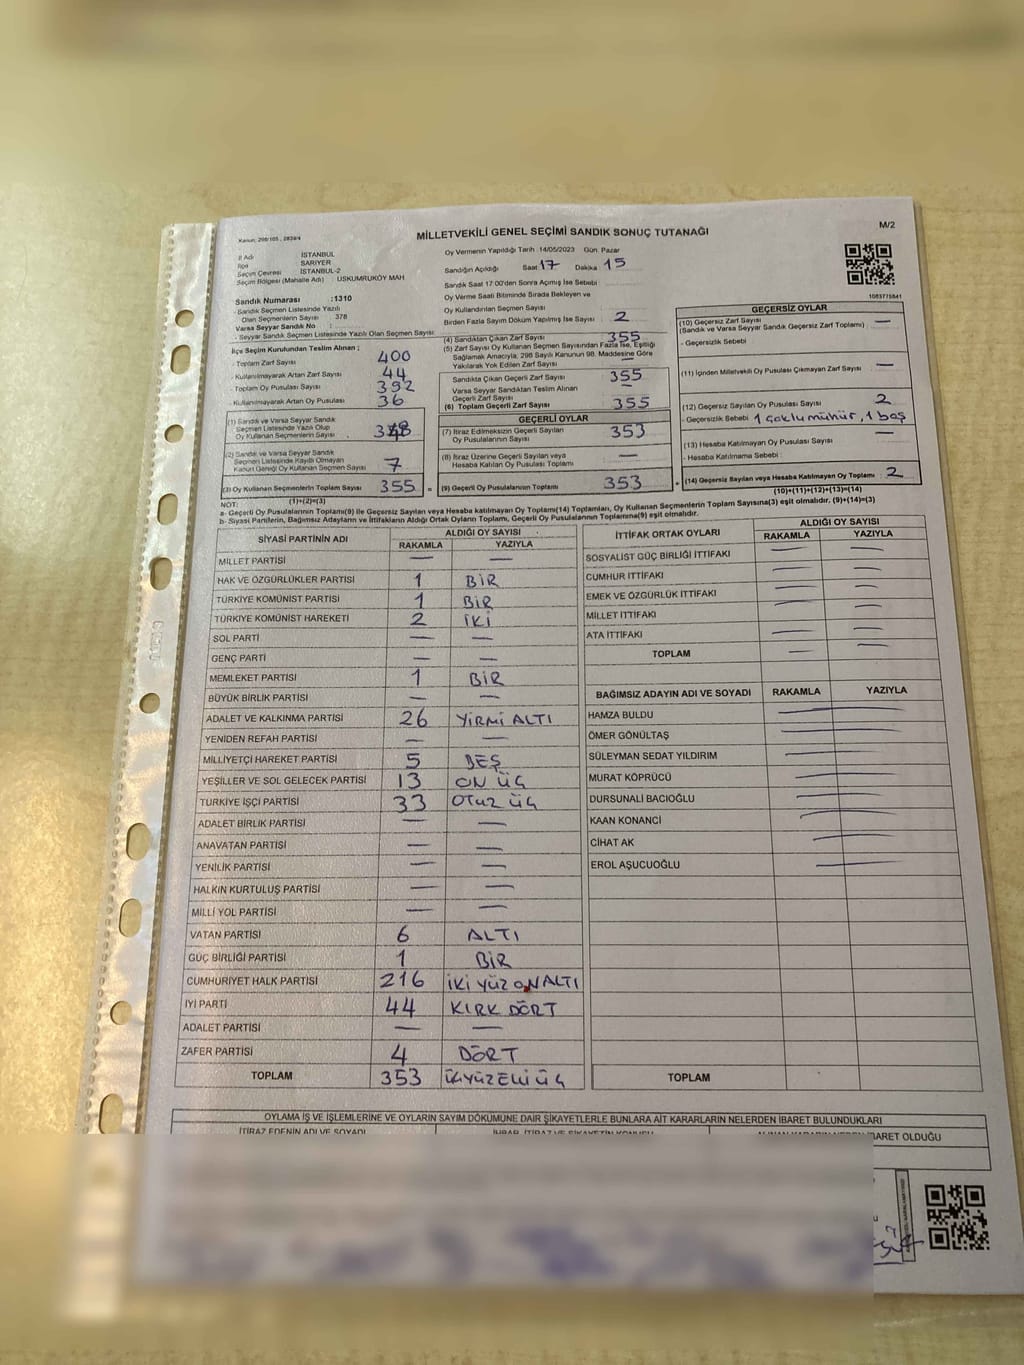 Kanun; 298/105 , 2839/4
MİLLETVEKİLİ GENEL SEÇİMİ SANDIK SONUÇ TUTANAĞI
M/2
İl Adı : İSTANBUL
İlçe : SARIYER
Seçim Çevresi : İSTANBUL-2
Seçim Bölgesi (Mahalle Adı) : USKUMRUKÖY MAH
Oy Vermenin Yapıldığı Tarih :14/05/2023 Gün: Pazar
Sandığın Açıldığı Saat 17 Dakika 15
Sandık Saat 17:00'den Sonra Açımış İse Sebebi :
Oy Verme Saati Bitiminde Sırada Bekleyen ve
Oy Kullandırılan Seçmen Sayısı
Birden Fazla Sayım Döküm Yapılmış İse Sayısı 2
1083775841
Sandık Numarası :1310
- Sandık Seçmen Listesinde Yazılı
Olan Seçmenlerin Sayısı : 378
Varsa Seyyar Sandık No :
- Seyyar Sandık Seçmen Listesinde Yazılı Olan Seçmen Sayısı
İlçe Seçim Kurulundan Teslim Alınan ;
- Toplam Zarf Sayısı 400
- Kullanılmayarak Artan Zarf Sayısı 44
- Toplam Oy Pusulası Sayısı 392
- Kullanılmayarak Artan Oy Pusulası 36
(1) Sandık ve Varsa Seyyar Sandık
Seçmen Listesinde Yazılı Olup
Oy Kullanan Seçmenlerin Sayısı
(2) Sandık ve Varsa Seyyar Sandık
Seçmen Listesinde Kayıtlı Olmayan
Kanun Gereği Oy Kullanan Seçmen Sayısı 7
(3) Oy Kullanan Seçmenlerin Toplam Sayısı 355
(1)+(2)=(3)
(4) Sandıktan Çıkan Zarf Sayısı 355
(5) Zarf Sayısı Oy Kullanan Seçmen Sayısından Fazla İse, Eşitliği
Sağlamak Amacıyla, 298 Sayılı Kanunun 98. Maddesine Göre
Yakılarak Yok Edilen Zarf Sayısı —
Sandıkta Çıkan Geçerli Zarf Sayısı 355
Varsa Seyyar Sandıktan Teslim Alınan
Geçerli Zarf Sayısı —
(6) Toplam Geçerli Zarf Sayısı 355
GEÇERLİ OYLAR
(7) İtiraz Edilmeksizin Geçerli Sayılan
Oy Pusulalarının Sayısı 353
(8) İtiraz Üzerine Geçerli Sayılan veya
Hesaba Katılan Oy Pusulası Toplamı —
= (9) Geçerli Oy Pusulalarının Toplamı 353
GEÇERSİZ OYLAR
(10) Geçersiz Zarf Sayısı —
(Sandık ve Varsa Seyyar Sandık Geçersiz Zarf Toplamı)
- Geçersizlik Sebebi
(11) İçinden Milletvekili Oy Pusulası Çıkmayan Zarf Sayısı —
(12) Geçersiz Sayılan Oy Pusulası Sayısı 2
- Geçersizlik Sebebi 1 çoklu mühür, 1 boş
(13) Hesaba Katılmayan Oy Pusulası Sayısı —
- Hesaba Katılmama Sebebi :
+ (14) Geçersiz Sayılan veya Hesaba Katılmayan Oy Toplamı : 2
(10)+(11)+(12)+(13)=(14)
NOT:
a- Geçerli Oy Pusulalarının Toplamı(9) ile Geçersiz Sayılan veya Hesaba Katılmayan Oy Toplamı(14) Toplamları, Oy Kullanan Seçmenlerin Toplam Sayısına(3) eşit olmalıdır. (9)+(14)=(3)
b- Siyasi Partilerin, Bağımsız Adayların ve İttifakların Aldığı Ortak Oyların Toplamı, Geçerli Oy Pusulalarının Toplamına(9) eşit olmalıdır.
SİYASİ PARTİNİN ADI
ALDIĞI OY SAYISI
RAKAMLA YAZIYLA
MİLLET PARTİSİ — —
HAK VE ÖZGÜRLÜKLER PARTİSİ 1 BİR
TÜRKİYE KOMÜNİST PARTİSİ 1 BİR
TÜRKİYE KOMÜNİST HAREKETİ 2 İKİ
SOL PARTİ — —
GENÇ PARTİ — —
MEMLEKET PARTİSİ 1 BİR
BÜYÜK BİRLİK PARTİSİ — —
ADALET VE KALKINMA PARTİSİ 26 YİRMİ ALTI
YENİDEN REFAH PARTİSİ — —
MİLLİYETÇİ HAREKET PARTİSİ 5 BEŞ
YEŞİLLER VE SOL GELECEK PARTİSİ 13 ON ÜÇ
TÜRKİYE İŞÇİ PARTİSİ 33 OTUZ ÜÇ
ADALET BİRLİK PARTİSİ — —
ANAVATAN PARTİSİ — —
YENİLİK PARTİSİ — —
HALKIN KURTULUŞ PARTİSİ — —
MİLLİ YOL PARTİSİ — —
VATAN PARTİSİ 6 ALTI
GÜÇ BİRLİĞİ PARTİSİ 1 BİR
CUMHURİYET HALK PARTİSİ 216 İKİ YÜZ ONALTI
İYİ PARTİ 44 KIRK DÖRT
ADALET PARTİSİ — —
ZAFER PARTİSİ 4 DÖRT
TOPLAM 353 ÜÇYÜZELLİ ÜÇ
İTTİFAK ORTAK OYLARI
ALDIĞI OY SAYISI
RAKAMLA YAZIYLA
SOSYALİST GÜÇ BİRLİĞİ İTTİFAKI — —
CUMHUR İTTİFAKI — —
EMEK VE ÖZGÜRLÜK İTTİFAKI — —
MİLLET İTTİFAKI — —
ATA İTTİFAKI — —
TOPLAM — —
BAĞIMSIZ ADAYIN ADI VE SOYADI RAKAMLA YAZIYLA
HAMZA BULDU —
ÖMER GÖNÜLTAŞ —
SÜLEYMAN SEDAT YILDIRIM —
MURAT KÖPRÜCÜ —
DURSUNALİ BACIOĞLU —
KAAN KONANCİ —
CİHAT AK —
EROL AŞUCUOĞLU —
TOPLAM
OYLAMA İŞ VE İŞLEMLERİNE VE OYLARIN SAYIM DÖKÜMÜNE DAİR ŞİKAYETLERLE BUNLARA AİT KARARLARIN NELERDEN İBARET BULUNDUKLARI
İTİRAZ EDENİN ADI VE SOYADI
İBARET OLDUĞU